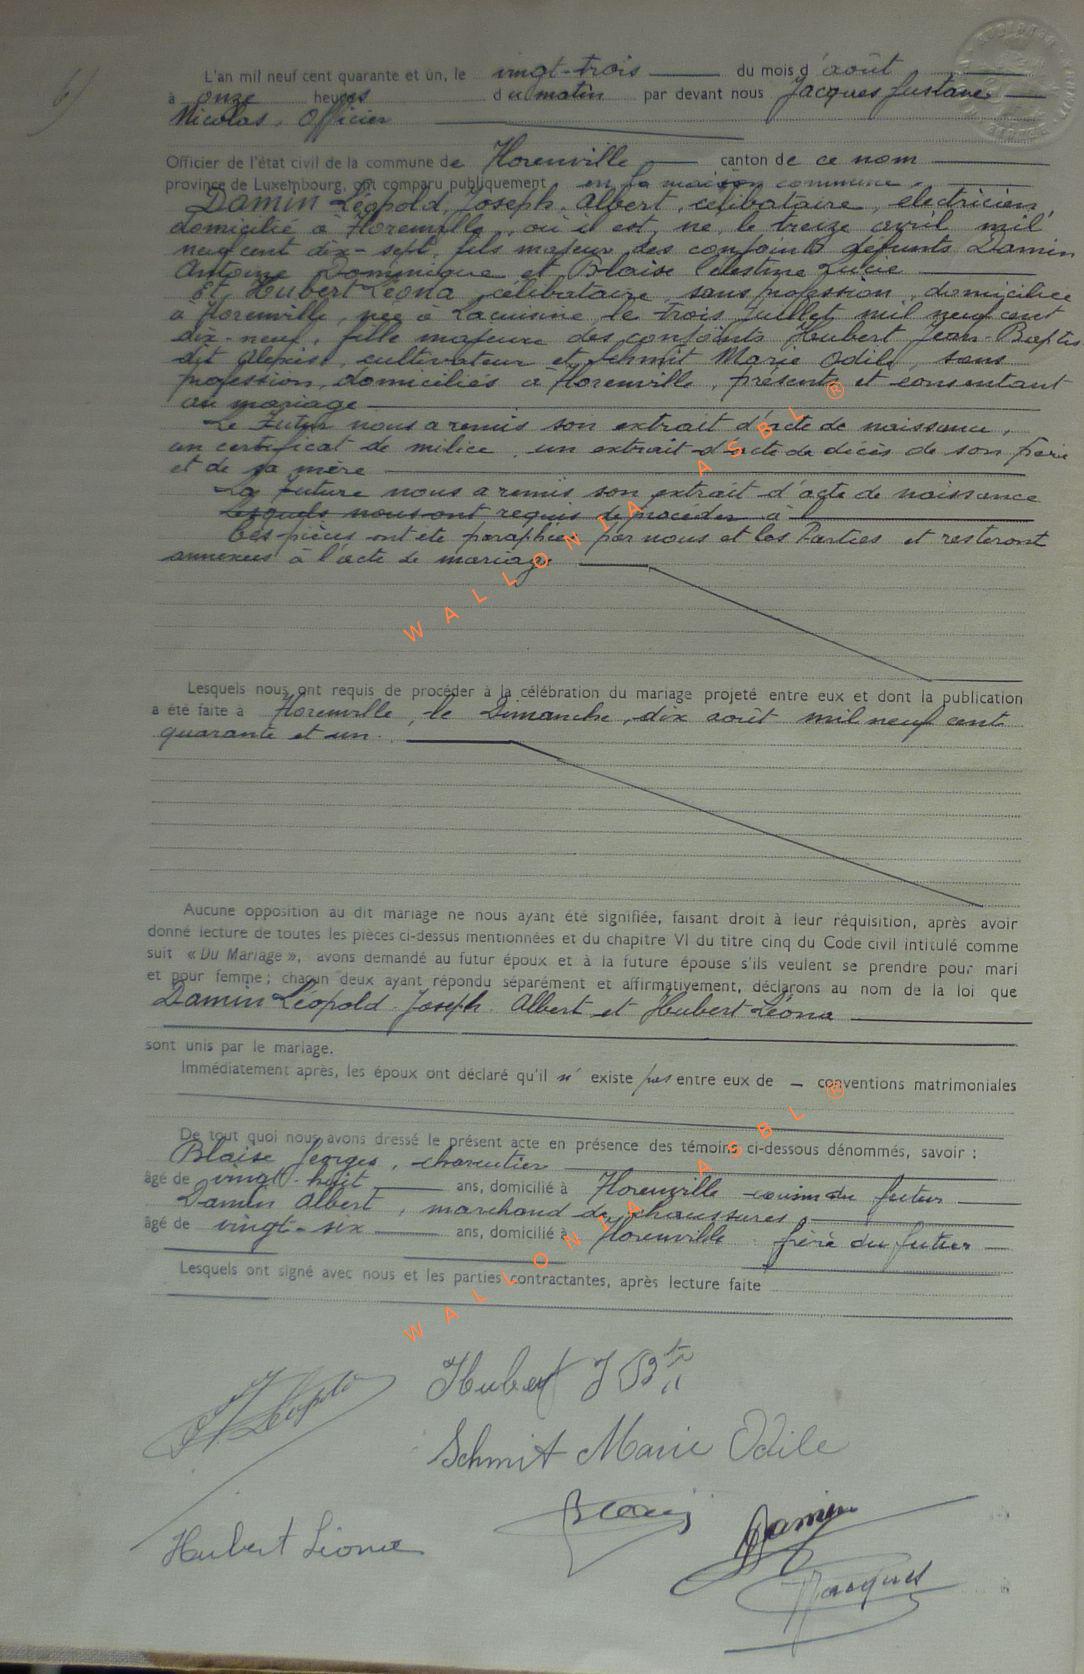 6)
L'an mil neuf cent quarante et un, le vingt-trois du mois d'août
à onze heures du matin par devant nous Jacques Gustave
Nicolas, Officier
Officier de l'état civil de la commune de Florenville canton de ce nom
province de Luxembourg, ont comparu publiquement en la maison commune,
Damin Léopold, Joseph, Albert, célibataire, électricien,
domicilié à Florenville, où il est né le treize avril mil
neuf cent dix-sept, fils majeur des conjoints défunts Damin
Antoine Dominique et Blaise Célestine Lucie
Et Hubert Léona, célibataire, sans profession, domiciliée
à Florenville, née à Lacuisine le trois Juillet mil neuf cent
dix-neuf, fille majeure des conjoints Hubert Jean-Baptis
dit Alexis, cultivateur et Schmit Marie Odile, sans
profession, domiciliés à Florenville, présents et consentant
au mariage
Le Futur nous a remis son extrait d'acte de naissance,
un certificat de milice, un extrait d'acte de décès de son père
et de sa mère
La Future nous a remis son extrait d'acte de naissance
Lesquels nous ont requis de procéder à l
Ces pièces ont été paraphées par nous et les Parties et resteront
annexées à l'acte de mariage
Lesquels nous ont requis de procéder à la célébration du mariage projeté entre eux et dont la publication
a été faite à Florenville, le Dimanche, dix août mil neuf cent
quarante et un.
Aucune opposition au dit mariage ne nous ayant été signifiée, faisant droit à leur réquisition, après avoir
donné lecture de toutes les pièces ci-dessus mentionnées et du chapitre VI du titre cinq du Code civil intitulé comme
suit « Du Mariage », avons demandé au futur époux et à la future épouse s'ils veulent se prendre pour mari
et pour femme ; chacun deux ayant répondu séparément et affirmativement, déclarons au nom de la loi que
Damin Léopold Joseph Albert et Hubert Léona
sont unis par le mariage.
Immédiatement après, les époux ont déclaré qu'il n'existe pas entre eux de — conventions matrimoniales
De tout quoi nous avons dressé le présent acte en présence des témoins ci-dessous dénommés, savoir :
Blaise Georges, charcutier
âgé de vingt-huit ans, domicilié à Florenville cousin du futur
Damin Albert, marchand de chaussures
âgé de vingt-six ans, domicilié à Florenville frère du futur
Lesquels ont signé avec nous et les parties contractantes, après lecture faite
Léopold
Hubert J Bte
Schmit Marie Odile
Hubert Léona
Damin
Jacques
WALLONIA ASBL ®
WALLONIA ASBL ®